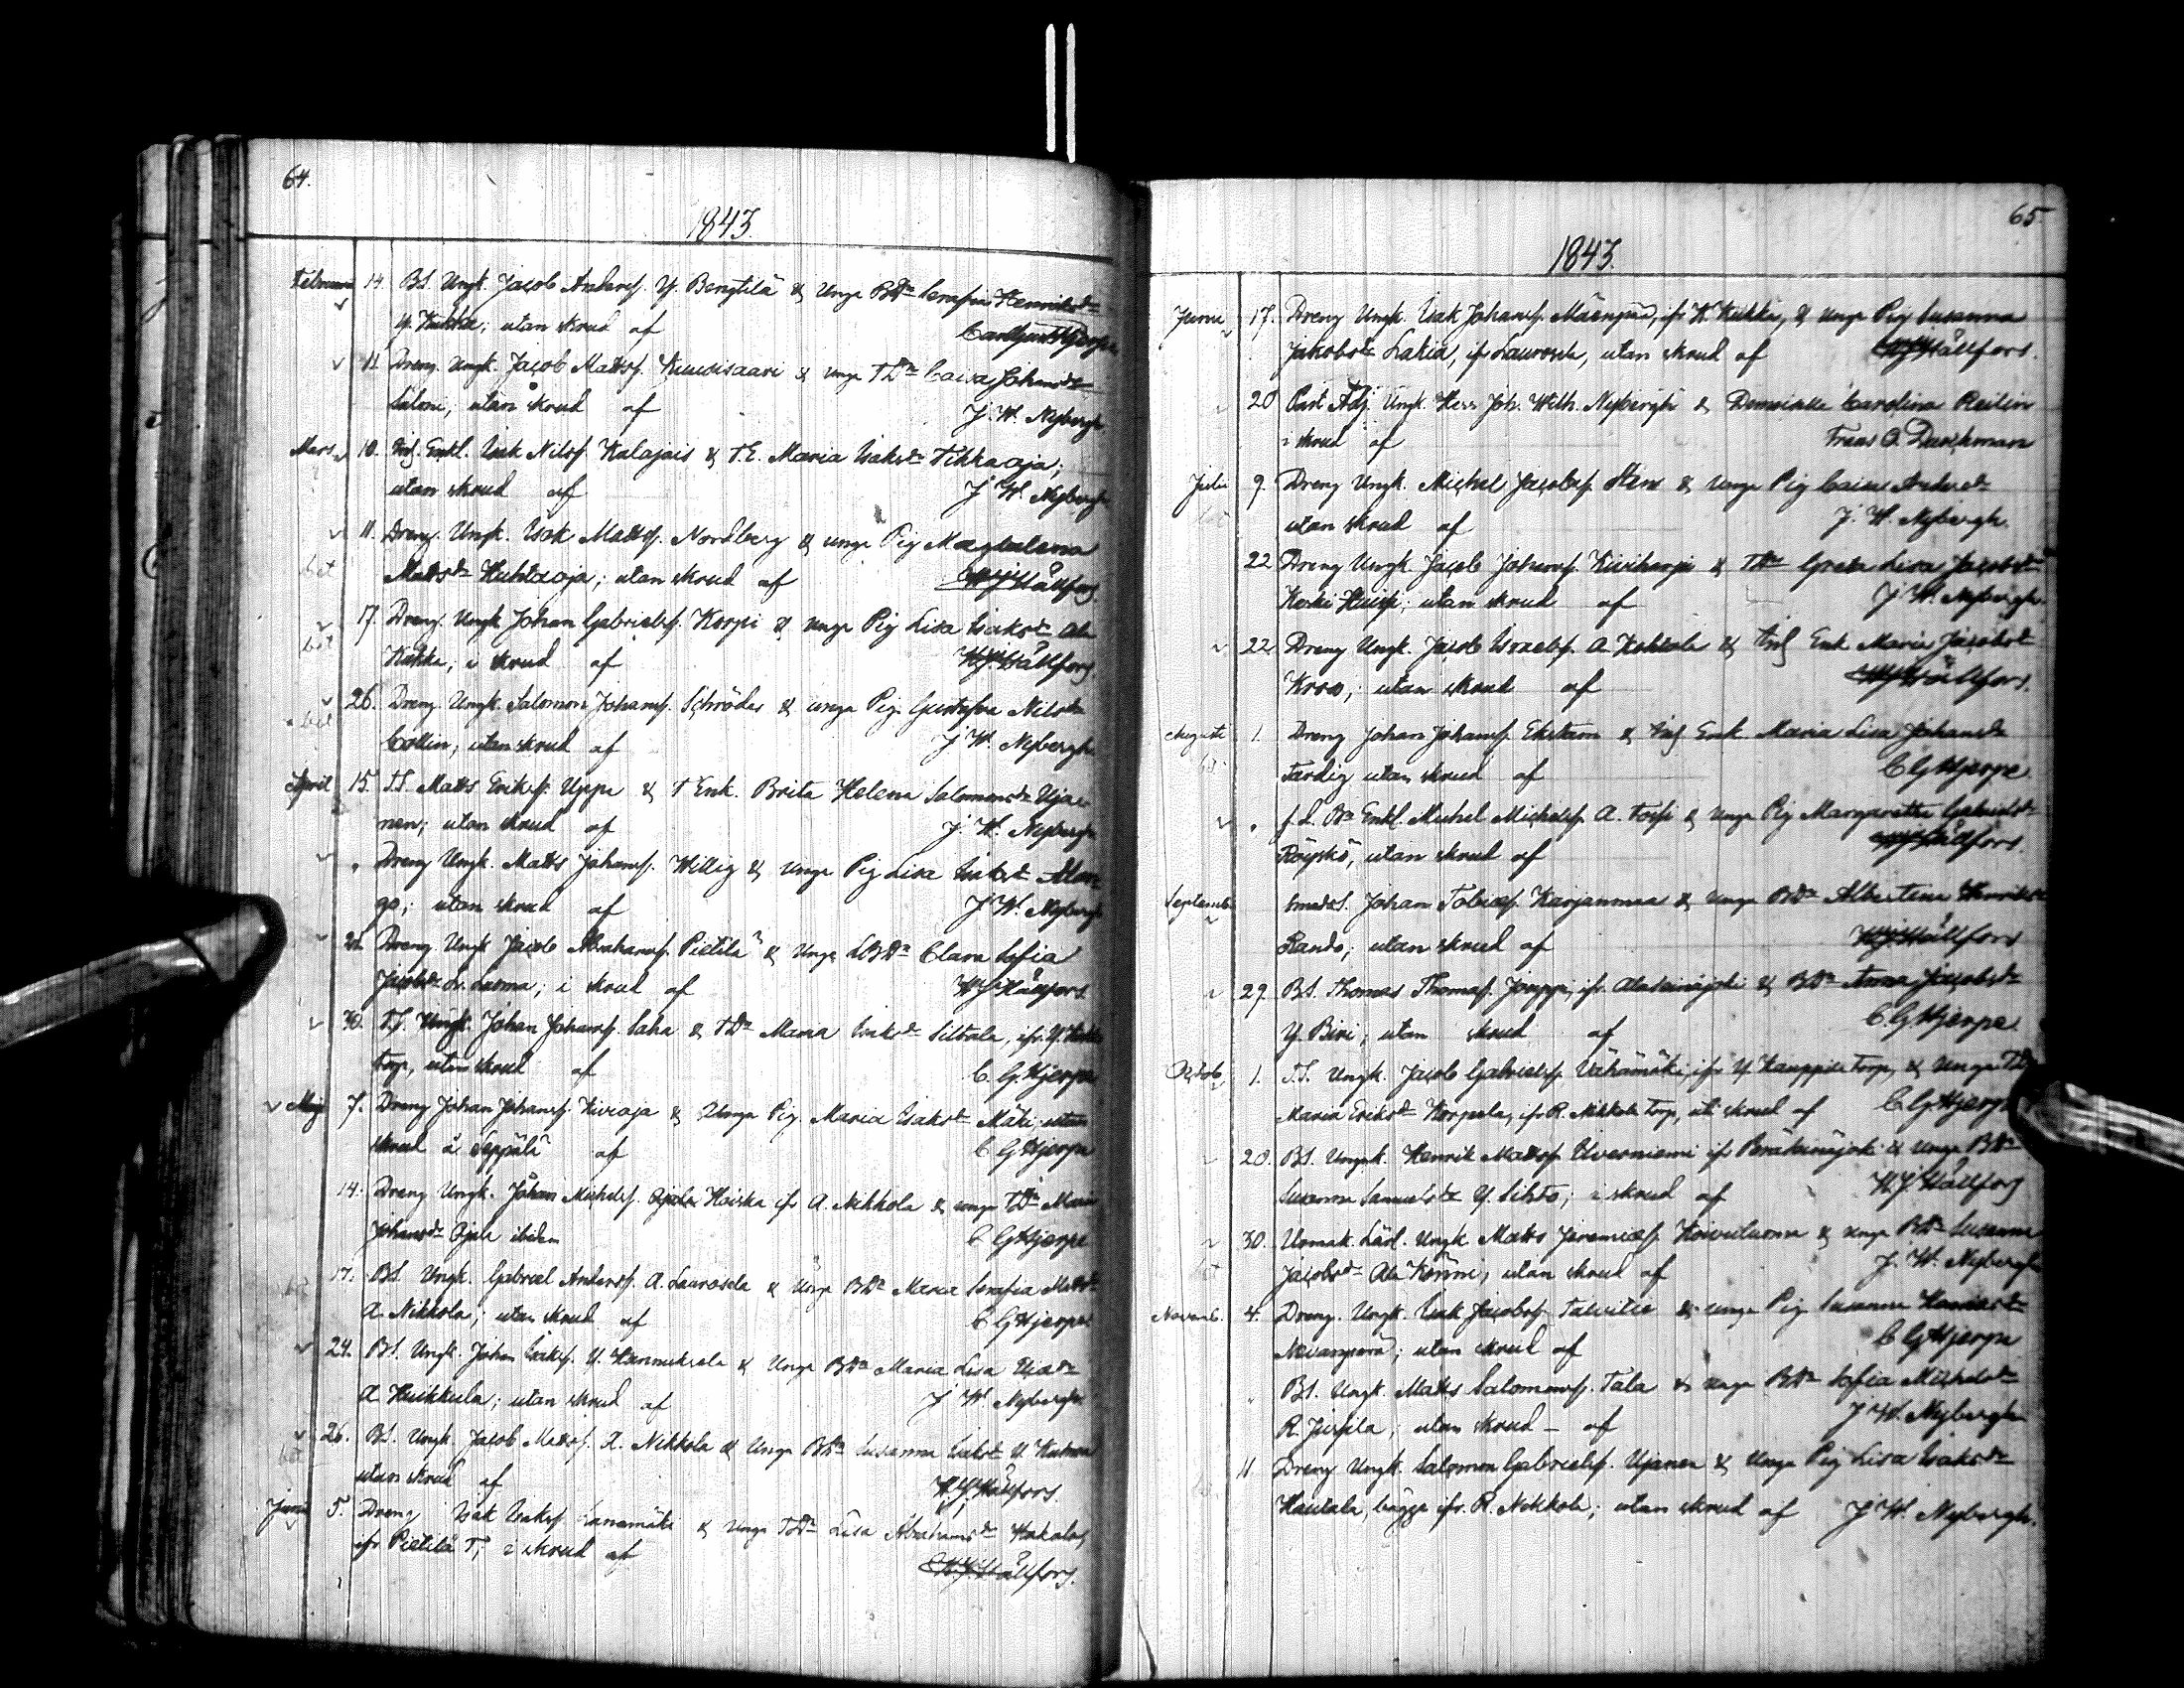 64.
1843.
Februari 14. BS. Ungk. Jacob Andersf. Y. Bengtilä & Unga BDr Serafia Henriksdr
Y. Kukka; utan skrud af
11 Dreng. Ungk. Jacob Mattsf. Kuusisaari & unga TDr Caisa Johansdr
Saloni; utan skrud af J. W. Nybergh
Mars 10. Enkl. Isak Nilsf. Kalajais & T.E. Maria Isaksdr Tikkaoja;
utan skrud af J W. Nybergh
11. Dreng. Ungk. Isak Mattsf. Nordberg & unga Pig Magdalena
bet Mattsdr Huhtaoja; utan skrud af Hållfors.
17. Dreng. Ungk Johan Gabrielsf. Korpi & unga Pig Lisa Isaksdr Ala
bet Kukka, i skrud af Hållfors.
26. Dreng Ungk. Salomon Johansf. Schröder & unga Pig. Gustafva Nilsdr
bet Collin; utan skrud af J W. Nybergh
April 15. T.S. Matts Eriksf. Uppa & T Enk. Brita Helena Salomonsdr Ujai-
nen; utan skrud af J. W. Nybergh
" Dreng Ungk. Matts Johansf. Willig & unga Pig Lisa Isaksdr
go; utan skrud af J W. Nybergh
Dreng Ungk Jacob Abrahamsf. Pietilä & Unga BDr Clara Sofia
Jacobsdr Luoma; i skrud af Hållfors
30. T.S. Ungk. Johan Johansf. Saha & TDr Maria Isaksdr Siltala, ifr. Y.
Torp, utan skrud af C. G. Hjerpe
Maji 7. Dreng Johan Johansf. Kivioja & Unga Pig. Maria Isaksdr Mäki, utan
skrud å Seppälä af C G Hjerpe
14. Dreng Ungk. Johan Michelsf. Hoiska ifr A. Nikkola & unga TDr Maria
Johansdr Ojala ibidem C GHjerpe
17. BS. Ungk. Gabriel Andersf. A. Laurosela & Unga BDr Maria Serafia Mattsdr
A. Nikkola; utan skrud af C GHjerpe
24. BS. Ungk. Johan Isaksf. Y. Hannuksela & Unga BDr Maria Lisa
A Huikkula; utan skrud af J W. Nybergh
26. BS. Ungk. Jacob Mattsf. Nikkola & Unga BDr Susanna Isaksdr
bet utan skrud af Hållfors.
Junii 5. Dreng Isak Isaksf. Lanamäki & Unga TDr Lisa Abrahamsdr Hakala,
ifr Pietilä T; i skrud af Hållfors.
65
1843.
Junii 17. Dreng Ungk. Isak Johansf. Mäenpää, ifr K. Kukka, & unga Pig Susanna
Jakobsdr Lakia, ifr Laurosela, utan skrud af Hållfors.
20 Past. Adj. Ungk. Herr Joh. Wilh. Nybergh & Demoiselle Carolina Reilin
i skrud af Frans O. Durchman
Julii 9. Dreng Ungk. Michel Jacobsf. Sten & Unga Pig Caisa Andersdr
bet utan skrud af J. W. Nybergh.
22 Dreng Ungk. Jacob Johansf. Kiviharju & TDr Greta Lisa Jacobsdr
utan skrud af J W. Nybergh.
22 Dreng Ungk. Jacob Israelsf. A Kohtala & Enk Maria Jacobsdr
utan skrud af Hållfors.
Augusti 1. Dreng Johan Johansf. Ekstam & Enk Maria Lisa Johansdr
Färdig utan skrud af C G Hjerpe
" Enkl. Michel Michelsf. A. & Unga Pig Margaretha Gabrielsdr
Röyskö; utan skrud af Hållfors.
Septemb. SmedsS. Johan Tobiasf. Karjanmaa & unga BDr Albertina Henriksdr
Rando; utan skrud af Hållfors
29. BS. Thomas Thomasf. Jouppi, ifr. Alaseinäjoki & BDr Anna Jacobsdr
Y. Biri; utan skrud af C. G Hjerpe
Octob. 1. T.S. Ungk. Jacob Gabrielsf. Vähämäki, ifr Y Kauppila Torp, & Unga TDr
Maria Eriksdr Korpela, ifr R. Nikkola Torp, ut skrud af C G Hjerpe
20. BS. Ungk. Henrik Mattsf. ifr Peräseinäjoki & Unga BDr
Susanna Samuelsdr Y. Sihto; i skrud af Hållfors
30. Urmak. Lärl. Ungk Matts Jeremiasf. Koivuluoma & unga BDr Susanna
bet Jacobsdr Ala Könni, utan skrud af J. W. Nybergh
Novemb. 4. Dreng. Ungk. Isak Jacobsf. Talvitie & unga Pig Susanna
Nevanperä; utan skrud af C G Hjerpe
" BS. Ungk. Matts Salomonsf. Tala & unga BDr Sofia Michelsdr
R. Jussila; utan skrud - af J W. Nybergh
11 Dreng Ungk. Salomon Gabrielsf. Ujanen & Unga Pig Lisa Isaksdr
Hautala, bägge ifr. R. Nikkola; utan skrud af J W. Nybergh.